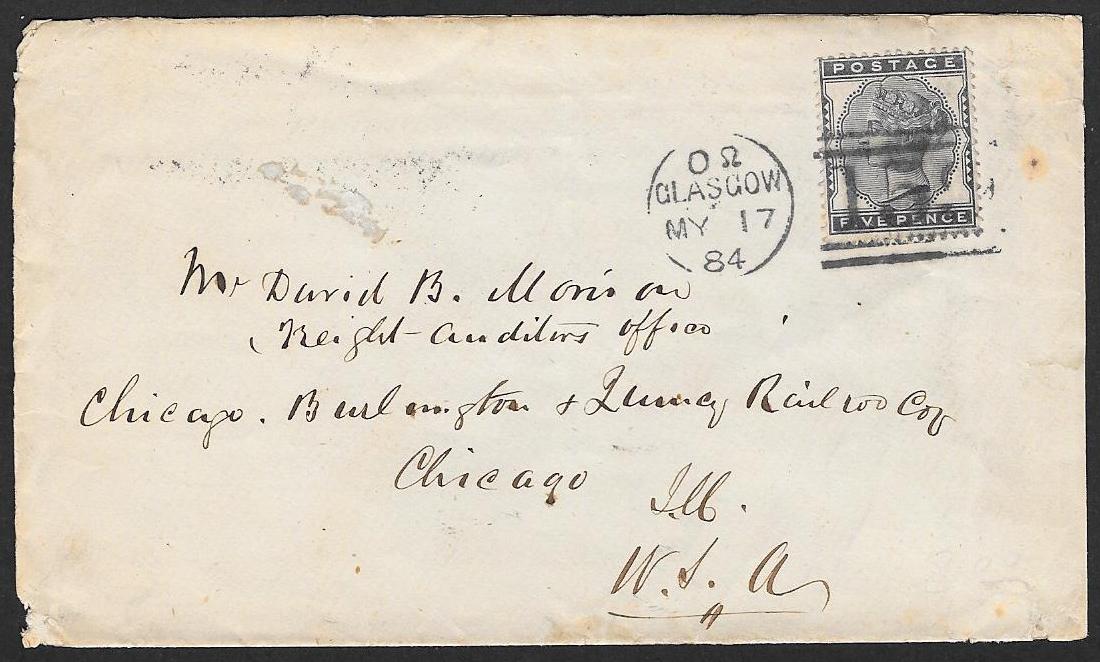 POSTAGE
FIVE PENCE
O Ω
GLASGOW
MY 17
84
Mr David B. Morison
Freight Auditors office
Chicago. Burlington & Quincy Railroad Coy
Chicago Ill.
U.S.A